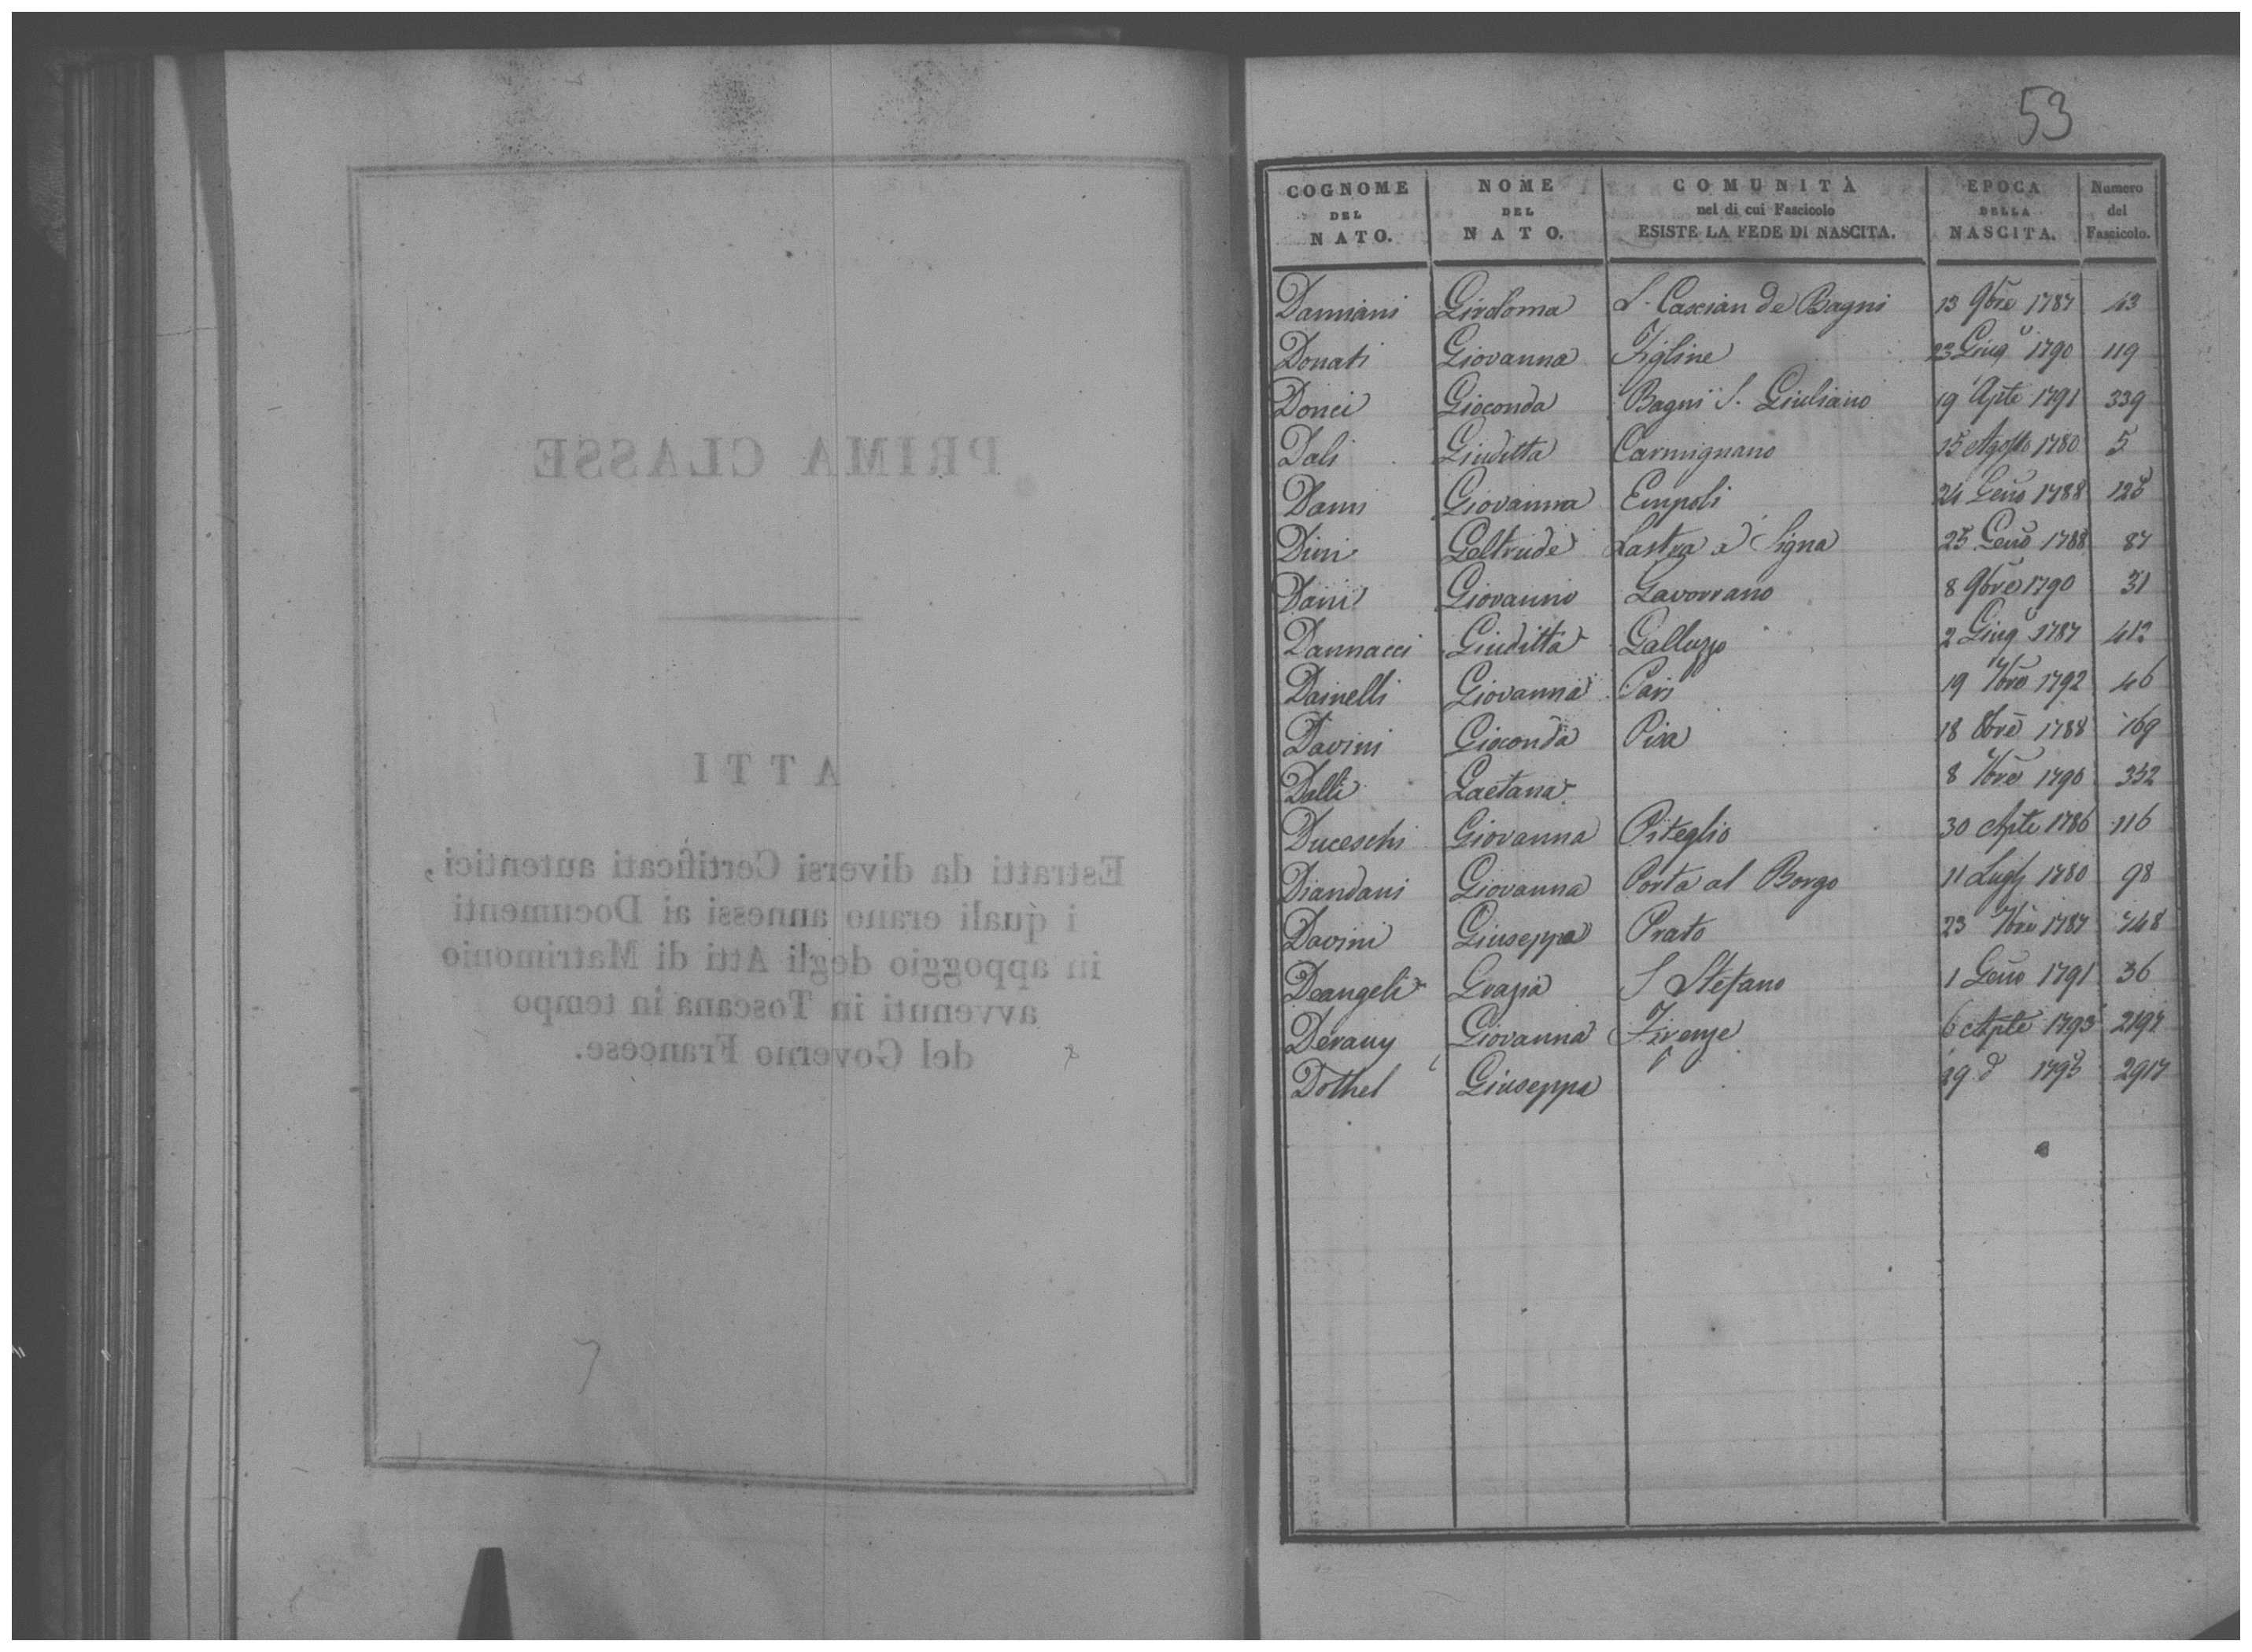 PRIMA CLASSE
ATTI
Estratti da diversi Certificati autentici,
i quali erano annessi ai Documenti
in appoggio degli Atti di Matrimonio
avvenuti in Toscana in tempo
del Governo Francese.
53
COGNOME DEL NATO. NOME DEL NATO. COMUNITÀ nel di cui Fascicolo ESISTE LA FEDE DI NASCITA. EPOCA DELLA NASCITA. Numero del Fascicolo.
Damiani Giroloma S. Cascian de Bagni 13 9bre 1787 43
Donati Giovanna Figline 23 Giugo 1790 119
Donci Gioconda Bagni S. Giuliano 19 Aple 1791 339
Dali Giuditta Carmignano 15 Agosto 1780 5
Danni Giovanna Empoli 24 Geno 1788 128
Dini Geltrude Lastra a Signa 25 Geno 1788 87
Dani Giovanna Gavorrano 8 9bre 1790 31
Dannacci Giuditta Galluzzo 2 Giugo 1787 412
Dainelli Giovanna Pari 19 7bre 1792 46
Davini Gioconda Pisa 18 8bre 1788 169
Dalli Gaetana 8 7bre 1790 352
Duceschi Giovanna Piteglio 30 Aple 1786 116
Diandani Giovanna Porta al Borgo 11 Lugl 1780 98
Davini Giuseppa Prato 23 7bre 1787 748
Deangeli Grazia S Stefano 1 Geno 1791 36
Derauy Giovanna Firenze 6 Aple 1793 2197
Dothel Giuseppa 29 d 1793 2917